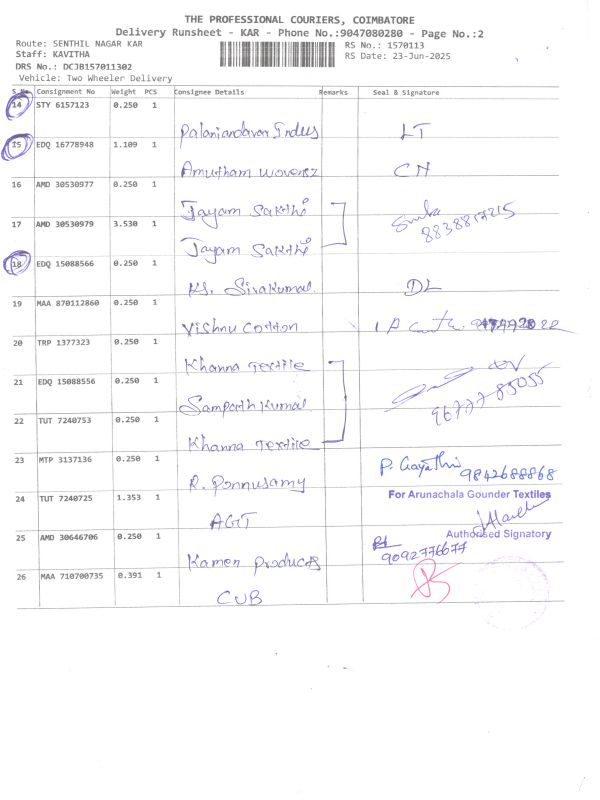 THE PROFESSIONAL COURIERS, COIMBATORE
Delivery Runsheet - KAR - Phone No.:9047080280 - Page No.:2
Route: SENTHIL NAGAR KAR
RS No.: 1570113
Staff: KAVITHA
RS Date: 23-Jun-2025
DRS No.: DCJB157011302
Vehicle: Two Wheeler Delivery
S.No Consignment No Weight PCS Consignee Details Remarks Seal & Signature
14 STY 6157123 0.250 1 Palaniandavar Indus LT
15 EDQ 16778948 1.109 1 Amutham Woverz CN
16 AMD 30530977 0.250 1 Jayam Sakthi
17 AMD 30530979 3.530 1 Jayam Sakthi 8838817215
18 EDQ 15088566 0.250 1 KS. Sivakumar. DL
19 MAA 870112860 0.250 1 Vishnu Cotton
20 TRP 1377323 0.250 1 Khanna Textile
21 EDQ 15088556 0.250 1 Sampath Kumar 96777 85055
22 TUT 7240753 0.250 1 Khanna Textile
23 MTP 3137136 0.250 1 R. Ponnusamy P. Gayathri 9842688868
24 TUT 7240725 1.353 1 AGT For Arunachala Gounder Textiles
Authorised Signatory
25 AMD 30646706 0.250 1 Kamen Products 9092776677
26 MAA 710700735 0.391 1 CUB